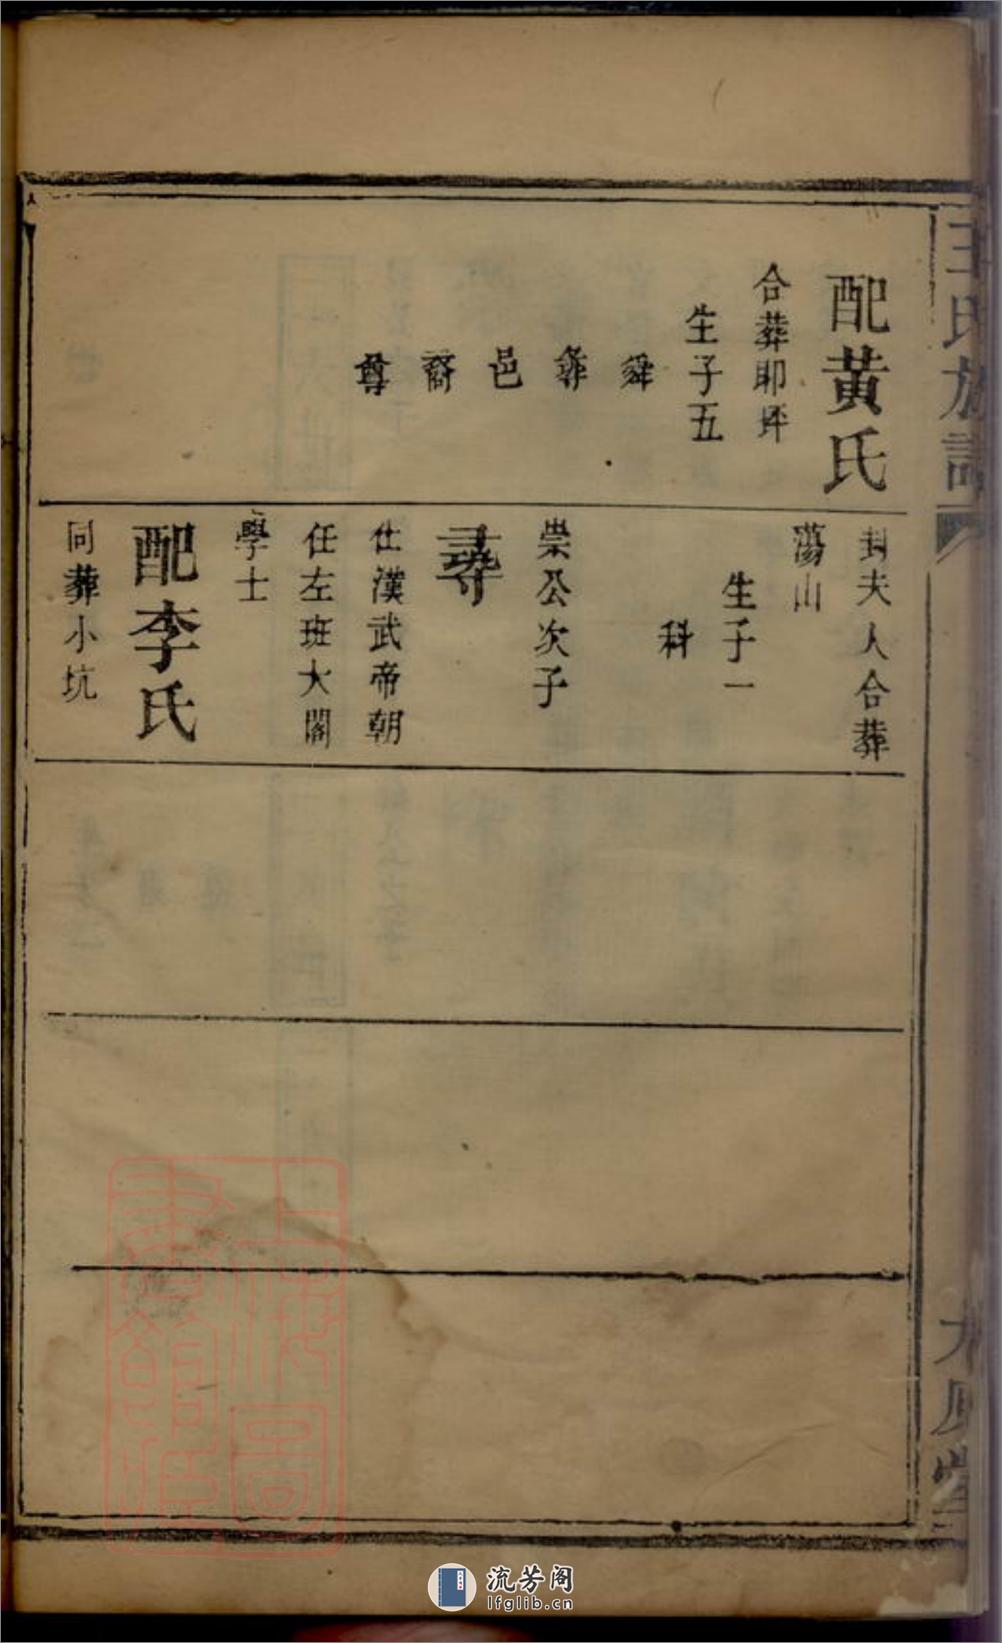 配黃氏
合葬即坪
生子五
舜
彜
邑
裔
尊
封夫人合葬
蕩山
生子一
科
崇公次子
尋
仕漢武帝朝
任左班大閣
學士
配李氏
同葬小坑
王氏族譜
上海圖書館藏
流芳阁
lfglib.cn